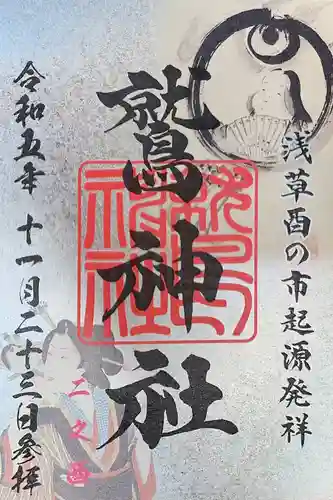 浅草酉の市起源発祥
鷲神社
二之酉
令和五年十一月二十三日参拝